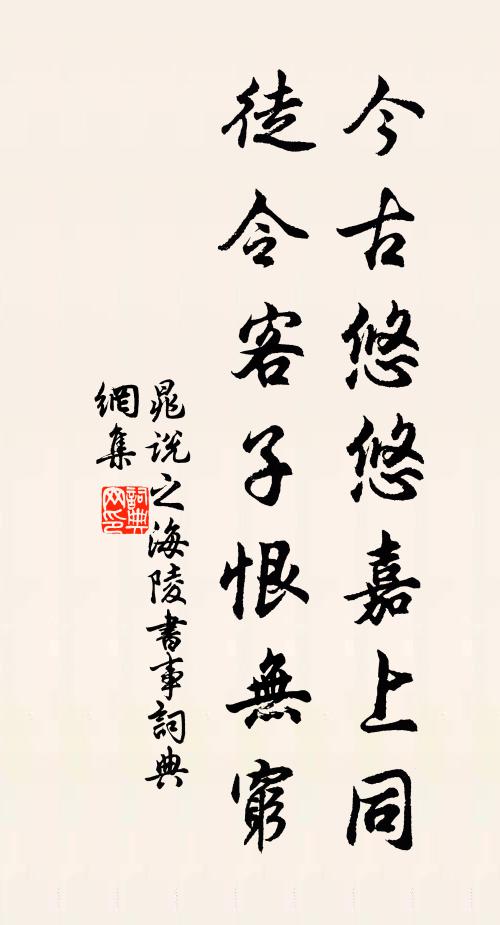 今古悠悠嘉上同
徒令客子恨無窮
晁說之海陵書事詞典
網集
詞典網印